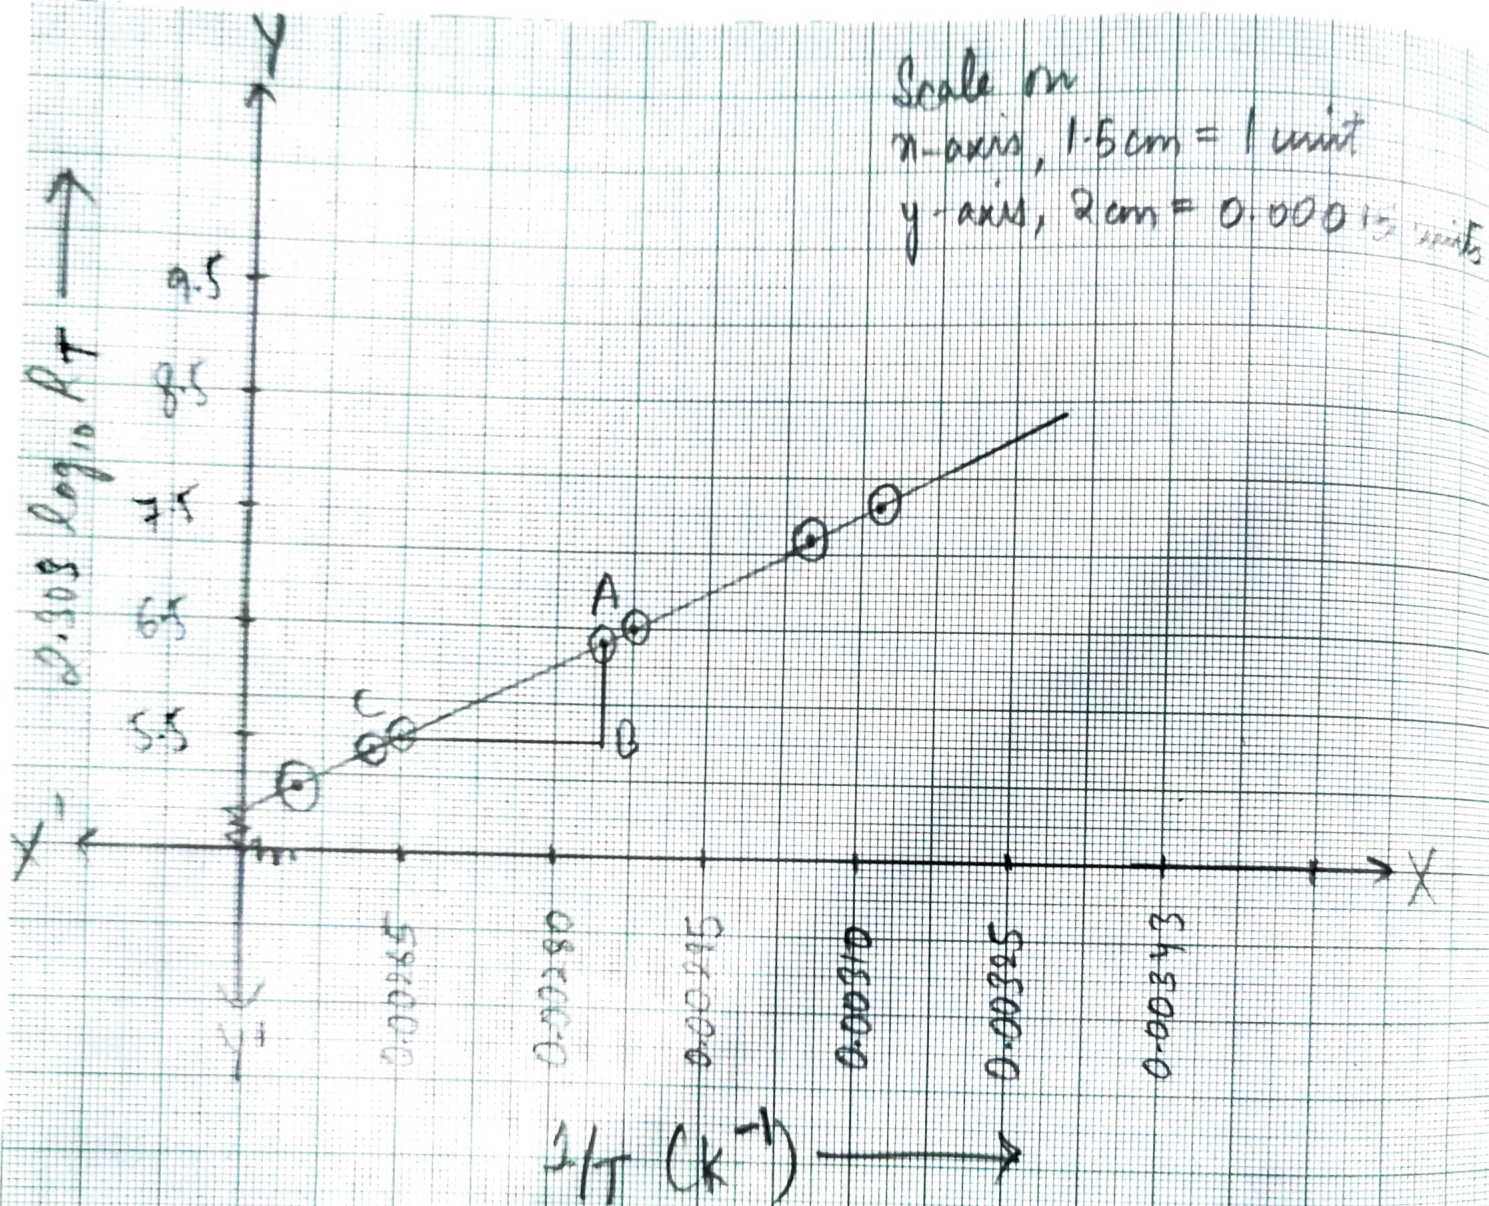 Y
Scale on
x-axis, 1.5 cm = 1 unit
y-axis, 2 cm = 0.00015 units
2.303 log10 RT
9.5
8.5
7.5
6.5
5.5
A
C
B
X'
X
Y'
0.00265
0.00280
0.00295
0.00310
0.00325
0.00343
1/T (K⁻¹)